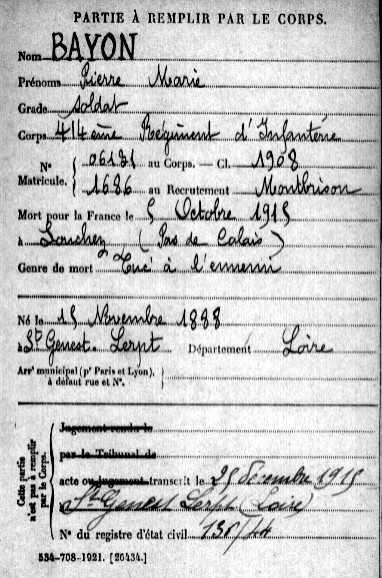 PARTIE À REMPLIR PAR LE CORPS.
Nom BAYON
Prénoms Pierre Marie
Grade Soldat
Corps 414ème Régiment d'Infanterie
N° Matricule. { 06181 au Corps. — Cl. 1908
1686 au Recrutement Montbrison
Mort pour la France le 5 Octobre 1915
à Souchez (Pas de Calais)
Genre de mort Tué à l'ennemi
Né le 15 Novembre 1888
à St Genest-Lerpt Département Loire
Arrt municipal (pr Paris et Lyon), à défaut rue et N°. {
Cette partie n'est pas à remplir par le Corps.
Jugement rendu le
par le Tribunal de
acte ou jugement transcrit le 25 décembre 1915
à St Genest Lerpt (Loire)
N° du registre d'état civil 135/14
534-708-1921. [26434.]